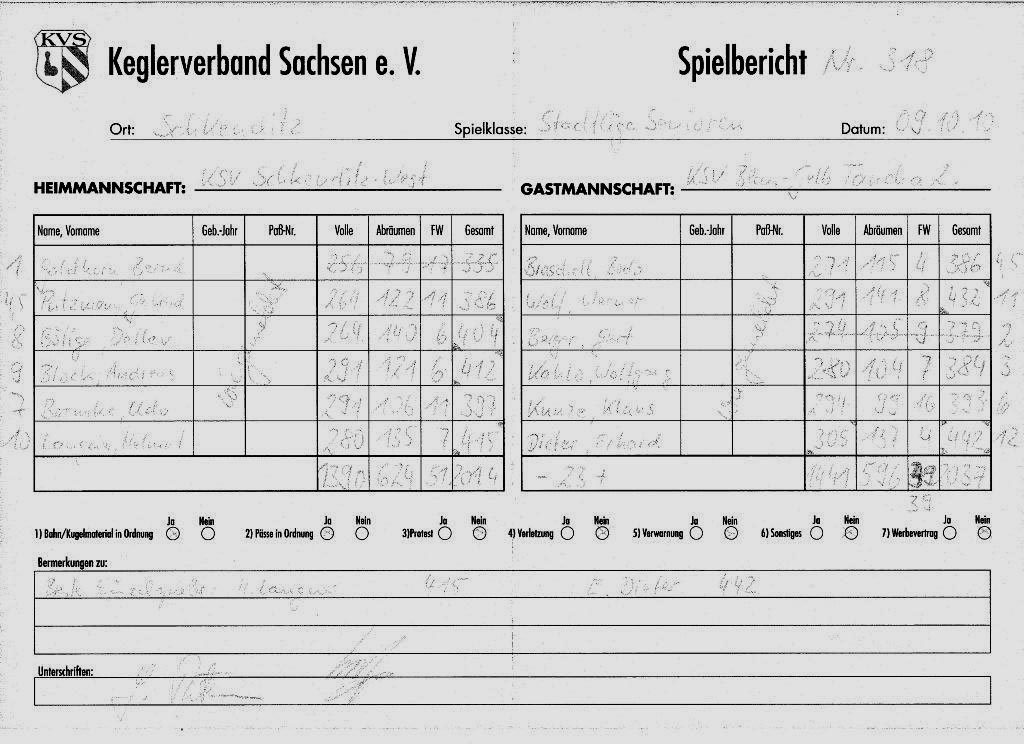 KVS Keglerverband Sachsen e. V. Spielbericht Nr. 318
Ort: Schkeuditz Spielklasse: Stadtliga Senioren Datum: 09.10.10
HEIMMANNSCHAFT: KSV Schkeuditz-West GASTMANNSCHAFT: KSV Blau-Gelb Taucha 2.
Name, Vorname Geb.-Jahr Paß-Nr. Volle Abräumen FW Gesamt Name, Vorname Geb.-Jahr Paß-Nr. Volle Abräumen FW Gesamt
1 Bernd 256 79 17 335 Bodo 271 115 4 386 4,5
4,5 261 122 11 386 Wolf, Werner 291 141 8 432 11
8 Detlev 264 140 6 404 Berger, Gert 274 105 9 379 2
9 Block, Andreas 291 121 6 412 Kahlo, Wolfgang 280 104 7 384 3
7 Udo 291 106 11 397 Kunze, Klaus 294 99 16 393 6
10 Helmut 280 135 7 415 Dieter, Erhard 305 137 4 442 12
1390 624 51 2014 - 23 + 1441 596 39 2037
39
Ja Nein Ja Nein Ja Nein Ja Nein Ja Nein Ja Nein Ja Nein
1) Bahn/Kugelmaterial in Ordnung 2) Pässe in Ordnung 3)Protest 4) Verletzung 5) Verwarnung 6) Sonstiges 7) Werbevertrag
Bermerkungen zu:
Beste Einzelspieler: H. 415 E. Dieter 442
Unterschriften: